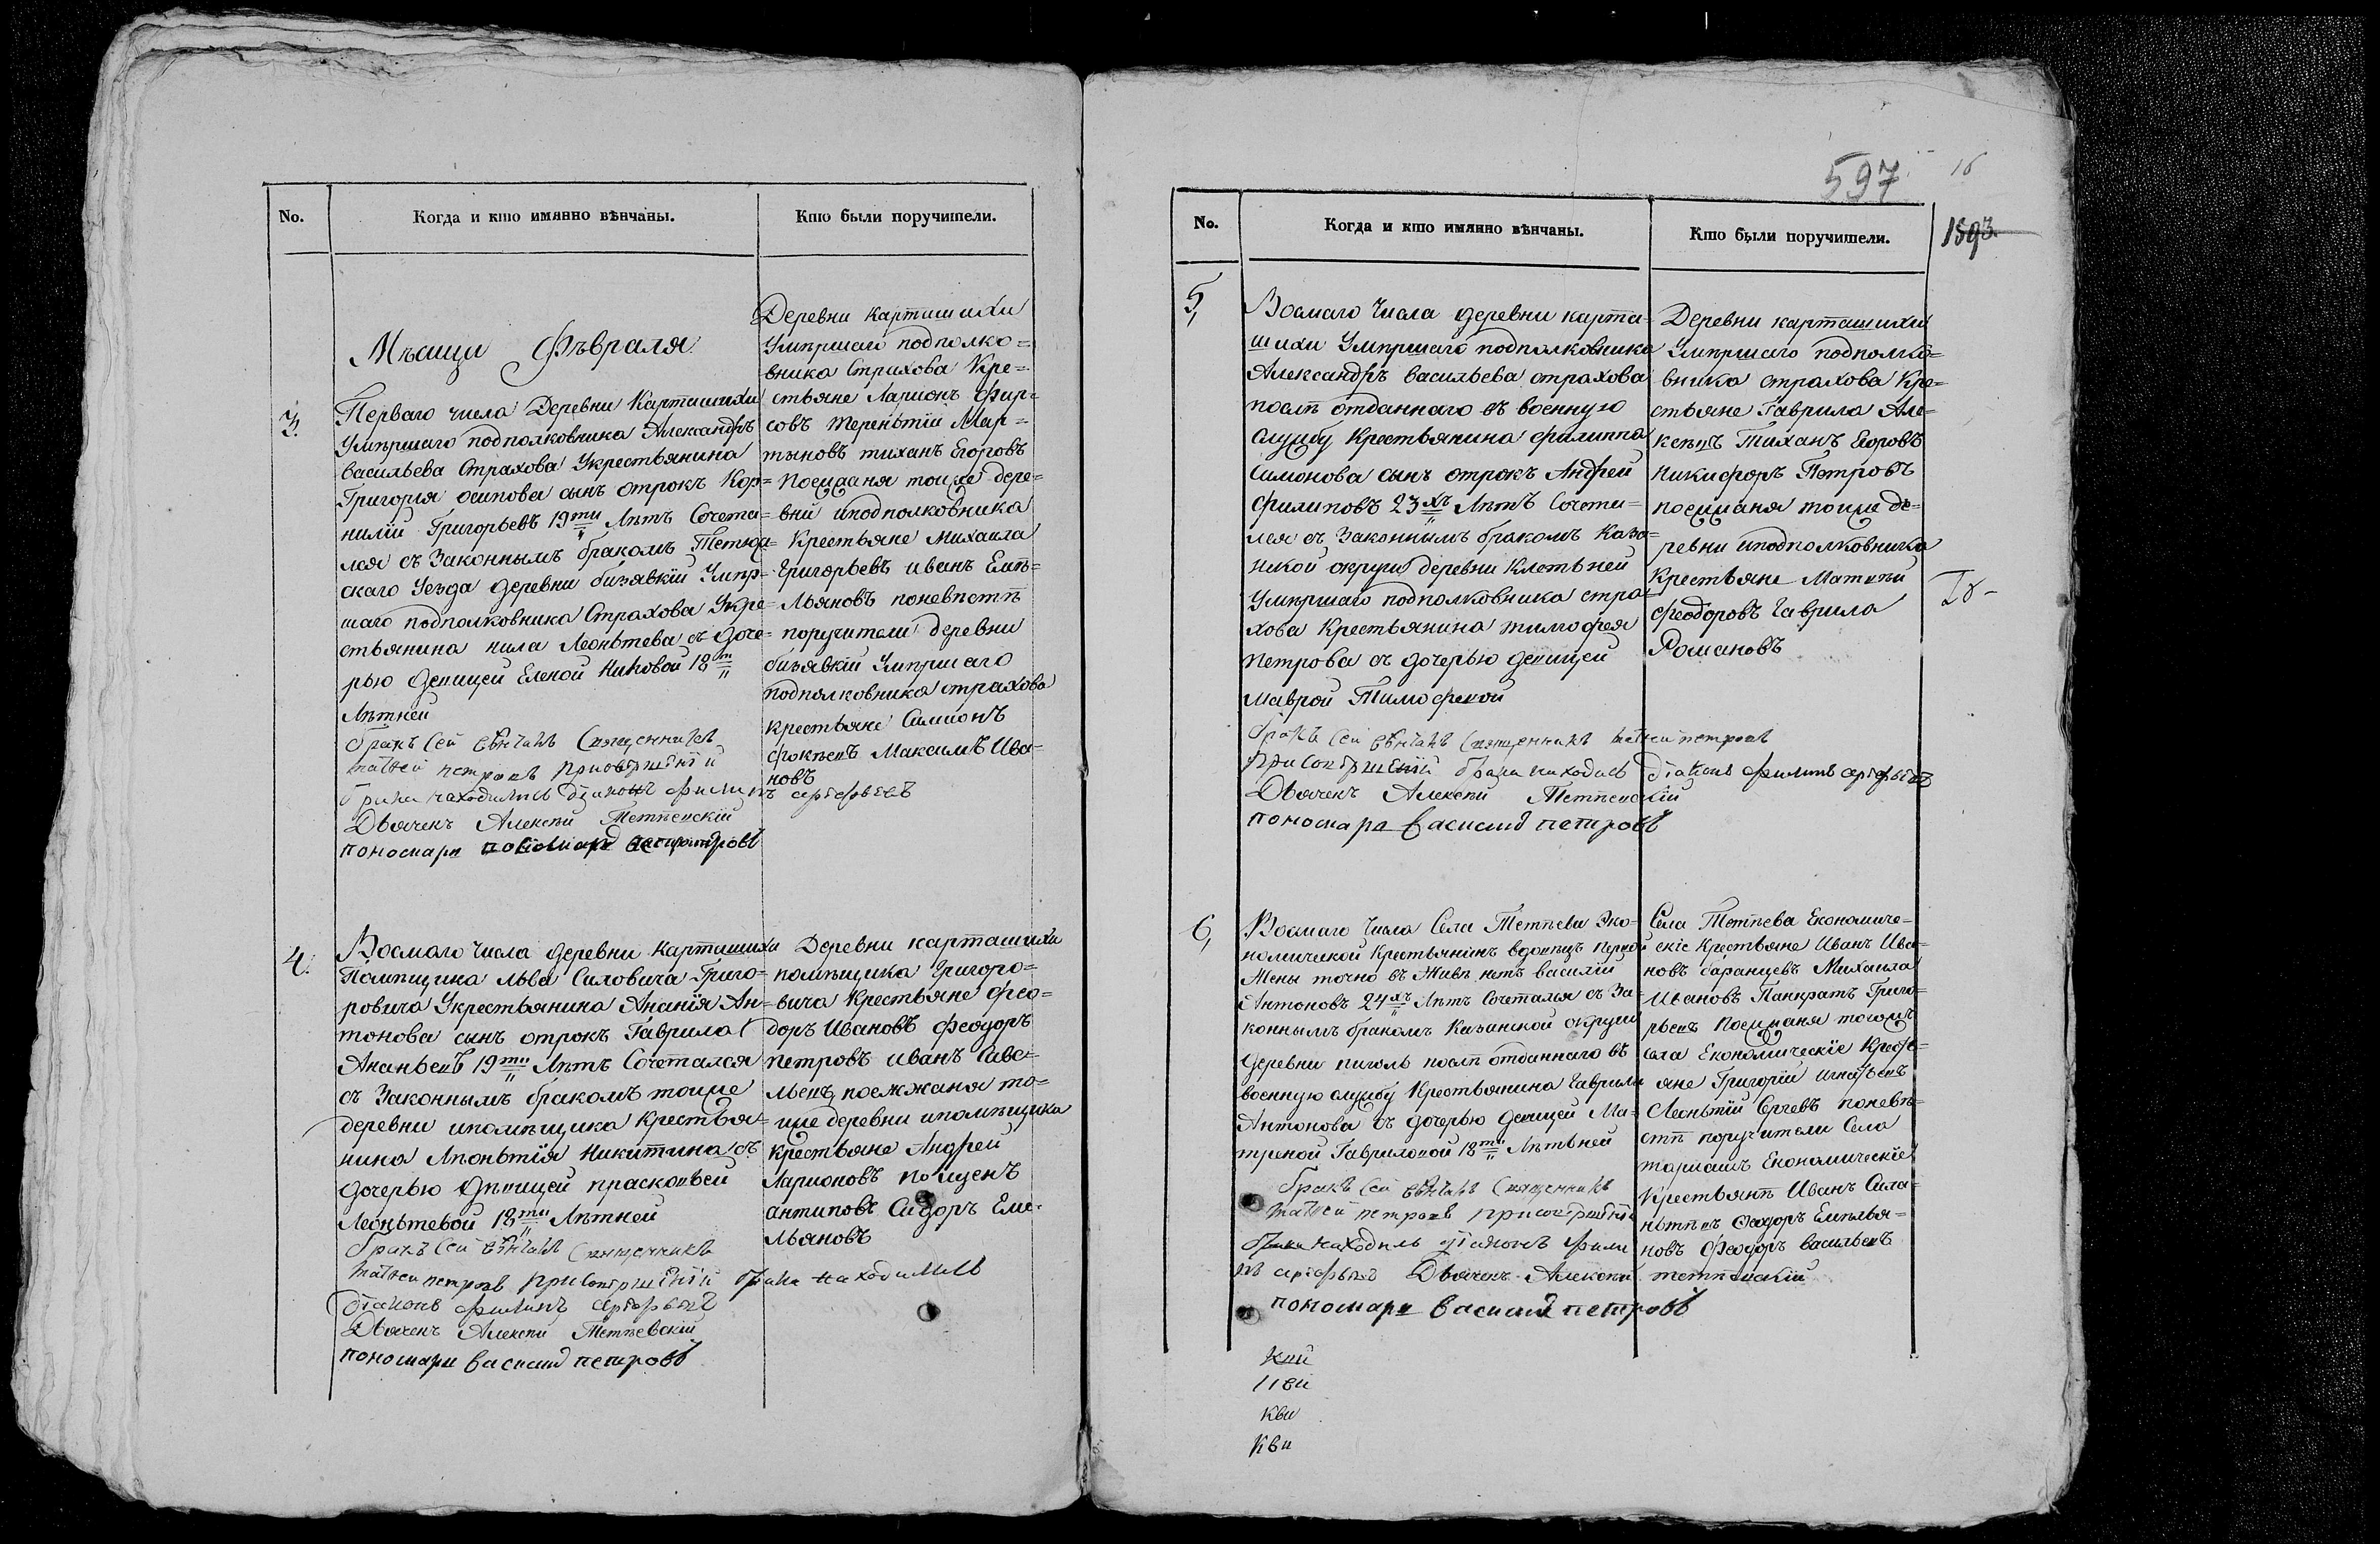 No.
Когда и кто имянно вѣнчаны.
Кто были поручители.
Мѣсяцъ Фѣвраля.
3.
Перваго числа Деревни Карташихи
Умѣршаго подполковника Александръ
васильева Страхова Укрестьянина
Григорья осипова сынъ отрокъ Кор=
нилiй Григорьевъ 19ти Лѣтъ Сочета=
лся съ Законнымъ бракомъ Тетюш=
скаго Уезда деревни бизявкiй Умѣр=
шаго подполковника Страхова Укре=
стьянина нила Леоньтева съ доче=
рью девицей Еленой Ниловой 18ти
Лѣтней
бракъ сей вѣнчалъ священникъ
матвей петровъ присовѣршенiй
брака находились дiаконъ филипъ арефьевъ
Дьячекъ Алексѣй Тетѣевскiй
пономарь петровъ
Деревни карташихи
Умѣршаго подполко=
вника Страхова Кре=
стьяне Ларионъ Фир=
совъ терентiй Мар=
тыновъ тиханъ Егоровъ
поезжаня тойже дере=
вни иподполковника
Крестьяне Михаила
Григорьевъ иванъ Емѣ=
льяновъ поневѣстѣ
поручители деревни
бизявкiй Умѣршаго
подполковника страхова
крестьяне Симионъ
фокѣевъ Максимъ Ива=
новъ
4.
Восмаго числа деревни Карташихи
Помѣщика льва Силовича Григо=
ровича Укрестьянина Ананiя Ан=
тонова сынъ отрокъ Гаврила
Ананьевъ 19ти Лѣтъ Сочетался
съ Законнымъ бракомъ тойже
деревни ипомѣщика Крестья=
нина Леоньтiя Никитина съ
дочерью дѣвицей прасковьей
Леоньтевой 18ти Лѣтней
бракъ сей вѣнчалъ священникъ
матвеи петровъ присовѣршенiй брака находились
дiаконъ филипъ арефьевъ
Дьячекъ Алексѣй Тетѣевскiй
пономарь василий петровъ
Деревни карташихи
помѣщика Григоро=
вича Крестьяне Фео=
доръ Ивановъ феодоръ
петровъ иванъ Саве=
льевъ поежжаня то=
йже деревни ипомѣщика
крестьяне Андрей
Ларионовъ
антиповъ Сидоръ Еме=
льяновъ
597
16
1893.
No.
Когда и кто имянно вѣнчаны.
Кто были поручители.
5,
Восмаго Числа деревни карта=
шихи Умѣршаго подполковника
Александръ васильева страхова
послѣ отданнаго въ военную
службу Крестьянина филиппа
Симонова сынъ отрокъ Андрей
филиповъ 23хъ Лѣтъ Сочета=
лся съ Законнымъ бракомъ Каза=
нской округи деревни Клетьней
Умѣршаго подполковника стра=
хова Крестьянина тимофея
петрова съ дочерью девицей
маврой Тимофевой
бракъ сей вѣнчалъ священникъ матвей петровъ
присовѣршенiй брака находись дiаконъ филипъ арефьевъ
Дьячекъ Алексѣй Тетѣевскiй
пономарь василий петровъ
Деревни карташихи
Умѣршаго подполко=
вника страхова Кре=
стьяне Гаврила Але=
ксѣевъ Тиханъ Егоровъ
никифоръ Петровъ
поезжаня тойже де=
ревни иподполковника
Крестьяне Матвѣй
феодоровъ Гаврила
Романовъ
6,
Восмаго Числа Села Тетѣева Эко=
номической Крестьянинъ вдовецъ первой
жены точно въ живѣ нѣтъ василiй
Антоновъ 24хъ Лѣтъ Сочетался съ За=
коннымъ бракомъ Казанской округи
деревни пиголь послѣ отданнаго въ
военную службу Крестьянина Гаврилы
Антонова съ дочерью девицей Ма=
треной Гавриловой 18ти Лѣтьней
бракъ сей вѣнчалъ священникъ
матвей петровъ присовѣршенiй
брака находиль дiаконъ фили
пъ арефьевъ Дьячекъ Алексѣй тетѣевскiй
пономарь василий петровъ
Села Тетѣева Економиче=
скiе Крестьяне Иванъ Ива=
новъ баранцевъ Михаила
Ивановъ Панкратъ Григо=
рьевъ поезжаня тогожъ
села Економическiе Кресть=
яне Григорiй игнатьевъ
Леоньтiй Сергевъ поневѣ=
стѣ поручители Села
ташъ Економическiе
Крестьянѣ Иванъ Сила=
ньтѣевъ Феодоръ Емѣлья=
новъ Феодоръ васильевъ
кви
кви